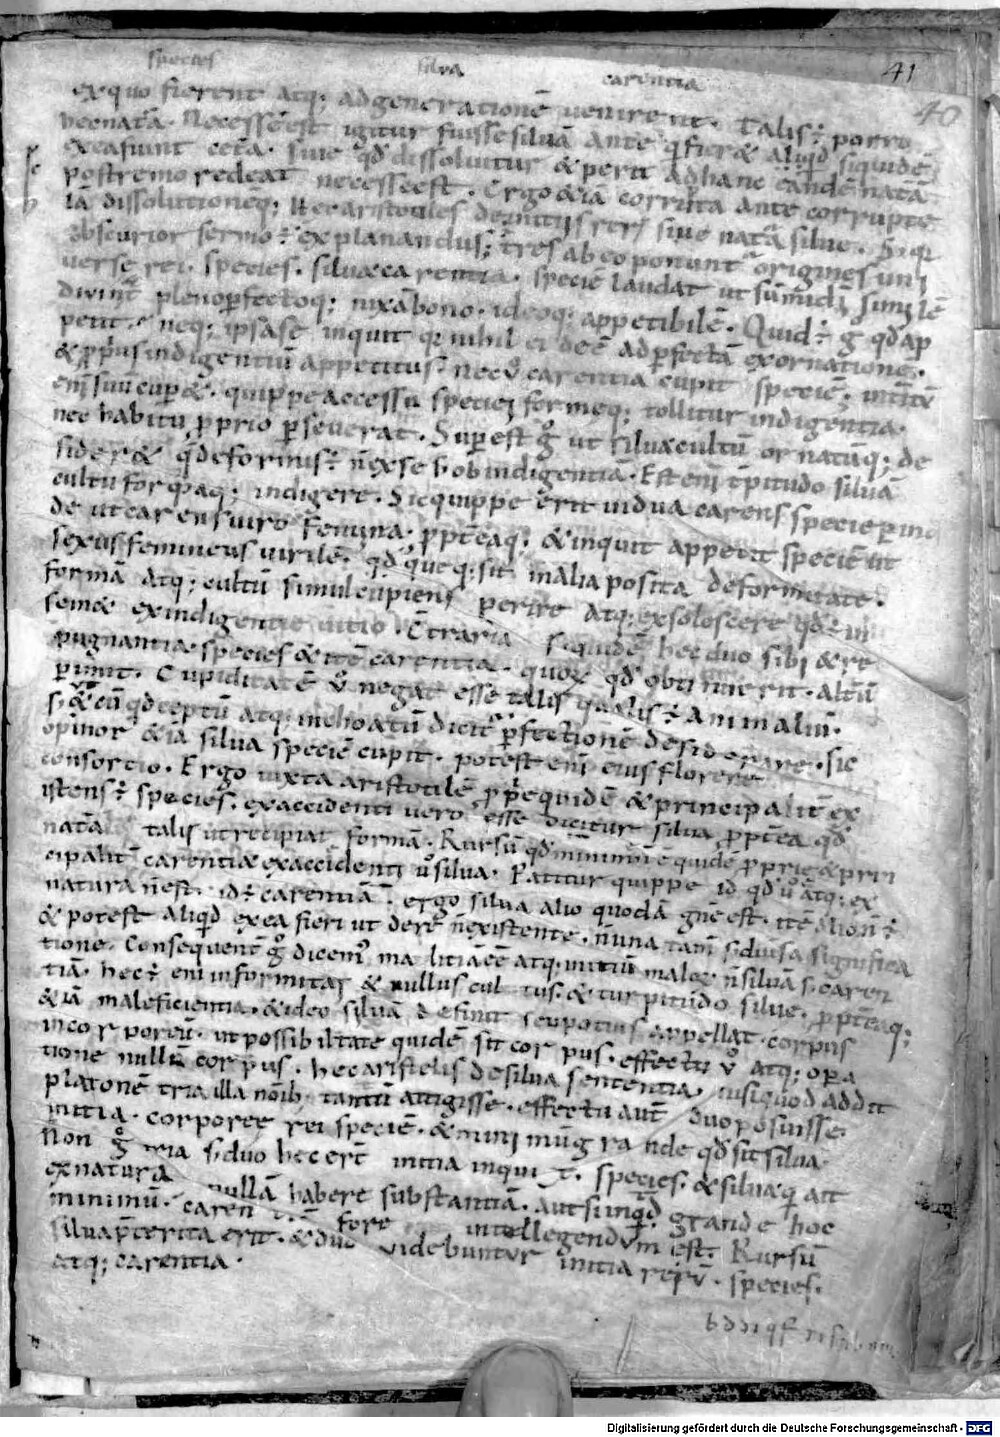 species silva carentia
41
40
ex quo fierent atq; ad generationē uenirent. Talis ÷ porro
hec natā. Necesse est igitur fuisse siluā ante q̄ fier& aliqd siquidē
ex ea fiunt cetā. siue qd dissoluitur & perit ad hanc eandē natā
postremo redeat necesse est. Ergo & iā corrupta ante corrupte
lā dissolutionēq; Hec aristotiles de initiis rerū siue natā silue. Si qr
obscurior sermo ÷ explanandus; tres ab eo ponunt origines uni
uerse rei. species. silua & carentia. speciē laudat ut sūmi di similē
diuinit pleno perfectoq; nixā bono. ideoq; appetibilē. Quid ÷ g qd ap
petit. neq; ipsa se inquit qr nihil ei deē ad pfectā exornationē.
& pprius indigentiū appetitus. nec ū carentia cupit speciē; intitū
eni suū cuper&. quippe accessu speciei formeq; tollitur indigentia.
nec habitu pprio pseuerat. Superest g ut silua cultū ornatūq; de
sider& q deformis ÷ n ex se s; ob indigentia. Est eni tpitudo siluā
cultu formaq; indigere. Sic quippe erit uidua carens specie perin
de ut carens uiro femina. pptea q; & inquit appetit speciē ut
sexus femineus uirilē. qd queq; sit in alia posita deformitate.
formā atq; cultū simul cupiens perire atq; exsolescere qd ÷ in
sem& ex indigentie uitio. Ctraria siquidē hec duo sibi & re
pugnantia. species & itē carentia. quoꝝ qd obtinuerit. altū
perimit. Cupiditatē ū negat esse talis qualis ÷ animaliū.
s; & cū qd ceptū atq; inchoatū dicit pfectionē desiderare. sic
opinor & iā silua speciē cupit. potest eni eius florere
consortio. Ergo iuxta aristotilē pprie quidē & principalit ex
istens ÷ species. ex accidenti uero esse dicitur silua pptea qd
natā talis ut recipiat formā. Rursū qd minime ē quidē pprie & prin
cipalit carentia ex accidenti ū silua. Patitur quippe id qd ū atq; ex
natura n est. id ÷ carentiā. ergo silua alio quodā gne est. itē alio n ÷
& potest aliqd ex ea fieri ut de re n existente. n una tam s; diuisa significa
tione. Consequent g dicem malitiā ēē atq; initiū maloꝝ n siluā s; caren
tiā. hec ÷ eni informitas & nullus cultus. & turpitudo silue. pptea q;
& iā maleficientia. & ideo siluā definit seu potius appellat. corpus
incorporeū. ut possibilitate quidē sit corpus. effectu ū atq; opera
tione nullū corpus. hec aristotelis de silua sententia. iusi quod addit
platonē tria illa noib tantū attigisse. effectu aut duo posuisse.
initia. corporee rei speciē. & minimū grande qd sit silua.
Non g tria s; duo hec ert initia inquit. species. & silua q ait
ex natura nullā habere substantiā. aut si inqd grande hoc
minimū. caren fore intellegendum est. Rursū
silua pterita erit. & duo uidebuntur initia rerū. species.
atq; carentia.
Digitalisierung gefördert durch die Deutsche Forschungsgemeinschaft - DFG